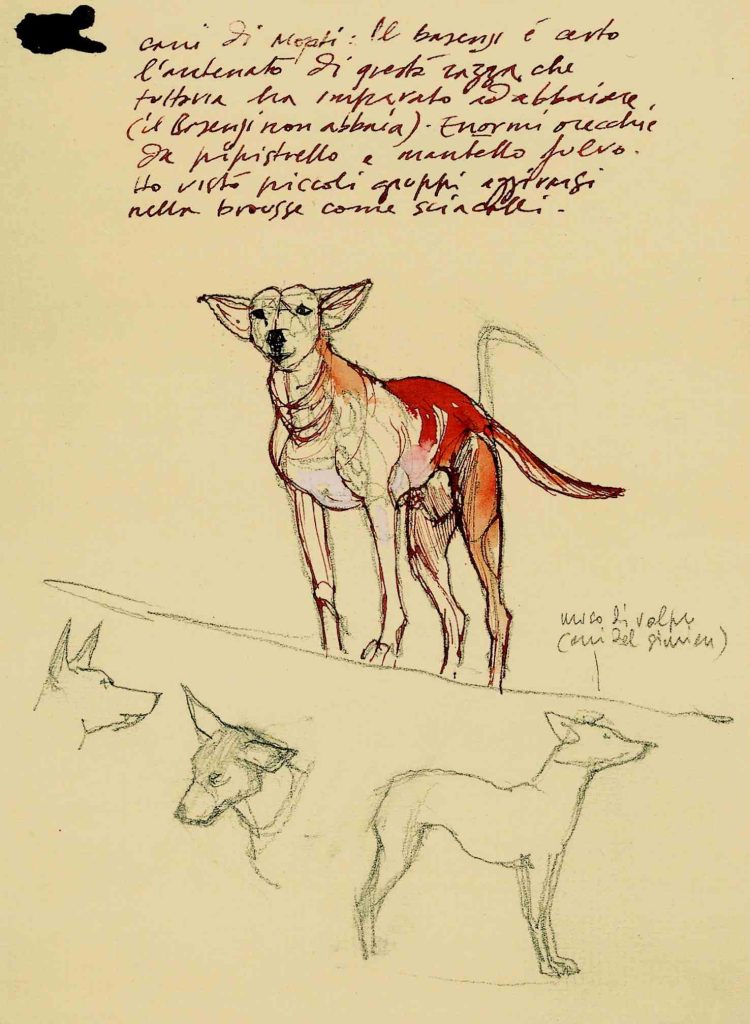 cani di Mopti: Il basenji è certo
l'antenato di questa razza, che
tuttavia ha imparato ad abbaiare,
(il Basenji non abbaia). Enormi orecchie
da pipistrello e mantello fulvo.
Ho visto piccoli gruppi aggirarsi
nella brousse come sciacalli.
muso di volpe
(cani del